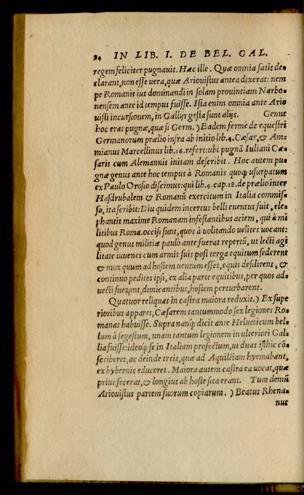 24 IN LIB. I. DE BEL. GAL.
regem feliciter pugnauit. Hæc ille. Quæ omnia satis de-
clarant, non esse uera, quæ Ariouistus antea dixerat: nem
pe Romanis ius dominandi in solam prouintiam Narbo-
nensem ante id tempus fuisse. Ista enim omnia ante Ario
uisti incursionem, in Gallijs gesta sunt alijs. Genus
hoc erat pugnæ, quo se Germ.) Eadem fermè de equestri
Germanorum prælio infra ab initio lib. 4. Cæsar, & Am-
mianus Marcellinus lib. 16. refert: ubi pugnã Iuliani Cæ-
saris cum Alemannis initam describit. Hoc autem pu-
gnæ genus ante hoc tempus à Romanis quoq; usurpatum
ex Paulo Orosio discimus: qui lib. 4. cap. 18. de prælio inter
Hasdrubalem & Romanũ exercitum in Italia commis-
so, ita scribit: Diu quidem incertus belli euentus fuit, ele-
phantis maxime Romanam infestantibus aciem, qui à mi
litibus Roma. occisi sunt, quos à uolitando uelites uocant:
quod genus militiæ paulo ante fuerat repertũ, ut lecti agi
litate iuuenes cum armis suis post terga equitum sederent
& mox quum ad hostem uentum esset, equis desilirent, &
continuo pedites ipsi, ex alia parte equitibus, per quos ad-
uecti fuerant, dimicantibus, hostem perturbarent.
Quatuor reliquas in castra maiora reduxit.) Ex supe
rioribus apparet, Cæsarem tantummodo sex legiones Ro-
manas habuisse. Supra nanq; dicit ante Helueticum bel-
lum à se gestum, unam tantum legionem in ulteriori Gal-
lia fuisse: ideoq; se in Italiam profectum, ut duas isthic cõ-
scriberet, ac deinde treis, quæ ad Aquileiam hyemabant,
ex hybernis educeret. Maiora autem castra ea uocat, quæ
prius fecerat, & longius ab hoste sita erant. Tum demũ
Ariouistus partem suorum copiarum.) Beatus Rhena-
nus